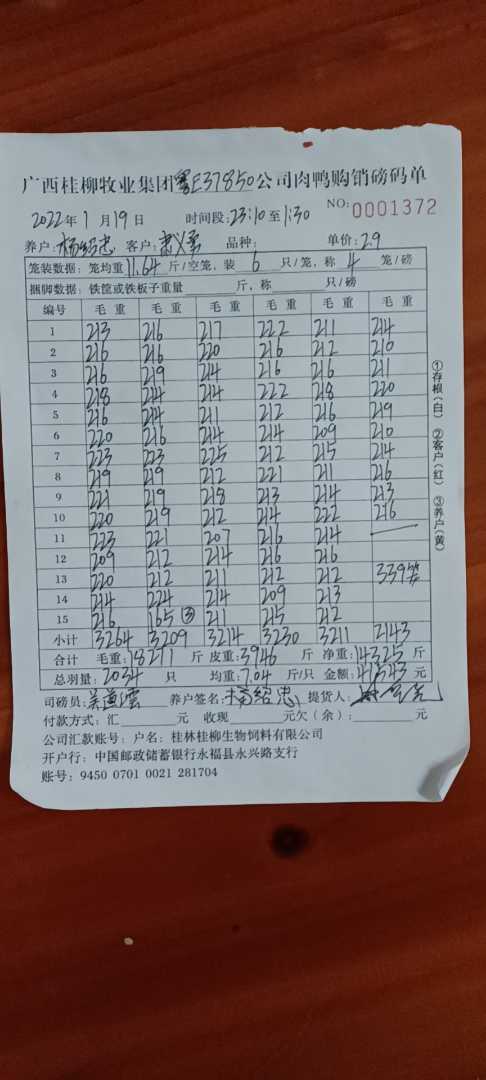 广西桂柳牧业集团粤E37850公司肉鸭购销磅码单
NO: 0001372
2022年1月19日 时间段:23:10至1:30
养户:杨绍忠 客户: 品种: 单价:2.9
笼装数据:笼均重11.64斤/空笼,装6只/笼,称4笼/磅
捆脚数据:铁筐或铁板子重量 斤,称 只/磅
编号 毛重 毛重 毛重 毛重 毛重 毛重
1 213 216 217 222 211 214
2 216 216 220 216 212 210
3 216 219 214 216 216 211
4 218 214 214 222 218 220
5 216 214 211 212 216 219
6 220 216 214 214 209 210
7 223 223 225 212 215 214
8 219 219 212 221 211 216
9 221 219 218 213 214 213
10 220 219 212 214 222 216
11 223 221 207 216 214
12 209 212 214 216 216
13 220 212 211 212 212 339笼
14 214 224 214 209 213
15 216 165③ 211 215 212
小计 3264 3209 3214 3230 3211 2143
合计 毛重:18271斤 皮重:3946斤 净重:14325斤
总羽量:2034只 均重:7.04斤/只 金额:41543元
司磅员: 养户签名:杨绍忠 提货人:
付款方式:汇 元 收现 元欠(余): 元
公司汇款账号:户名:桂林桂柳生物饲料有限公司
开户行:中国邮政储蓄银行永福县永兴路支行
账号:9450 0701 0021 281704
①存根(白) ②客户(红) ③养户(黄)